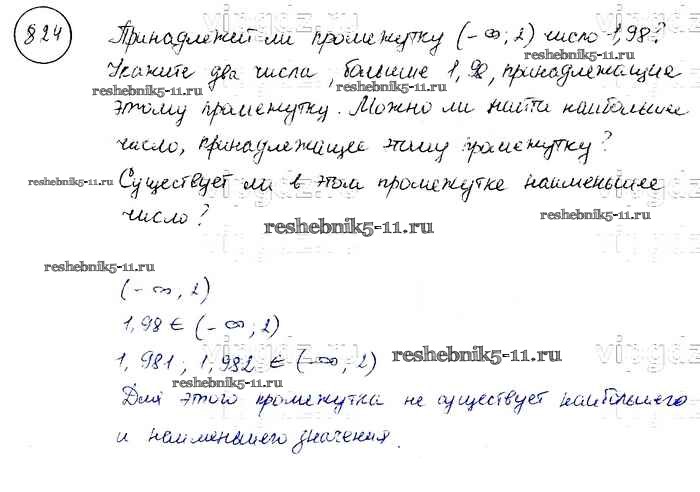 824
Принадлежит ли промежутку (-∞; 2) число 1,98?
Укажите два числа, больше 1,98, принадлежащие
этому промежутку. Можно ли найти наибольшее
число, принадлежащее этому промежутку?
Существует ли в этом промежутке наименьшее
число?
(-∞, 2)
1,98 ∈ (-∞; 2)
1,981; 1,982 ∈ (-∞; 2)
Для этого промежутка не существует наибольшего
и наименьшего значения.
reshebnik5-11.ru
reshebnik5-11.ru
reshebnik5-11.ru
reshebnik5-11.ru
reshebnik5-11.ru
reshebnik5-11.ru
reshebnik5-11.ru
reshebnik5-11.ru